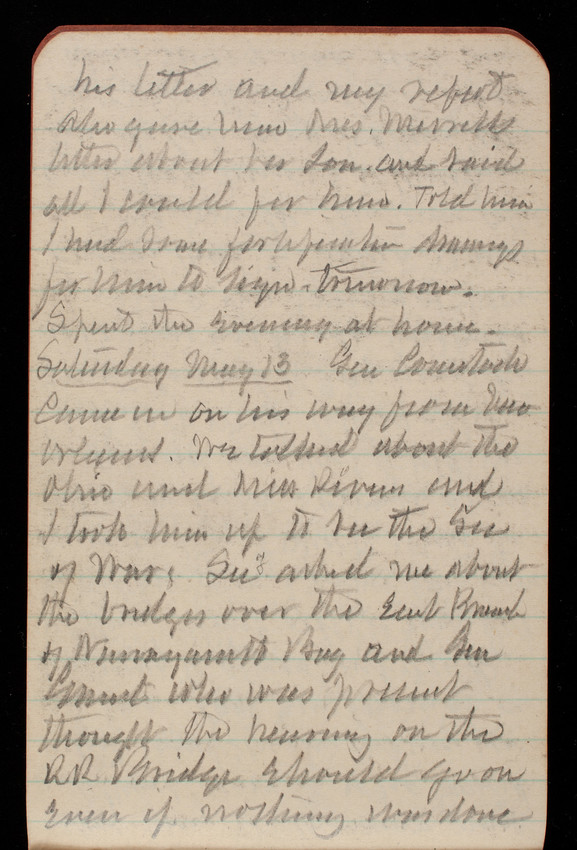 his letter and my report
also gave him Mrs. Merrill's
letter about her son and said
all I could for him. Told him
I had some fortification drawings
for him to sign tomorrow.
Spent the evening at home.
Saturday May 13 Gen Comstock
Came in on his way from New
Orleans. We talked about the
Ohio and Miss Rivers and
I took him up to see the Sec
of War. Secy asked me about
the bridges over the East Branch
of Narragansett Bay and Gen
who was present
thought the hearing on the
RR Bridge should go on
even if nothing was done